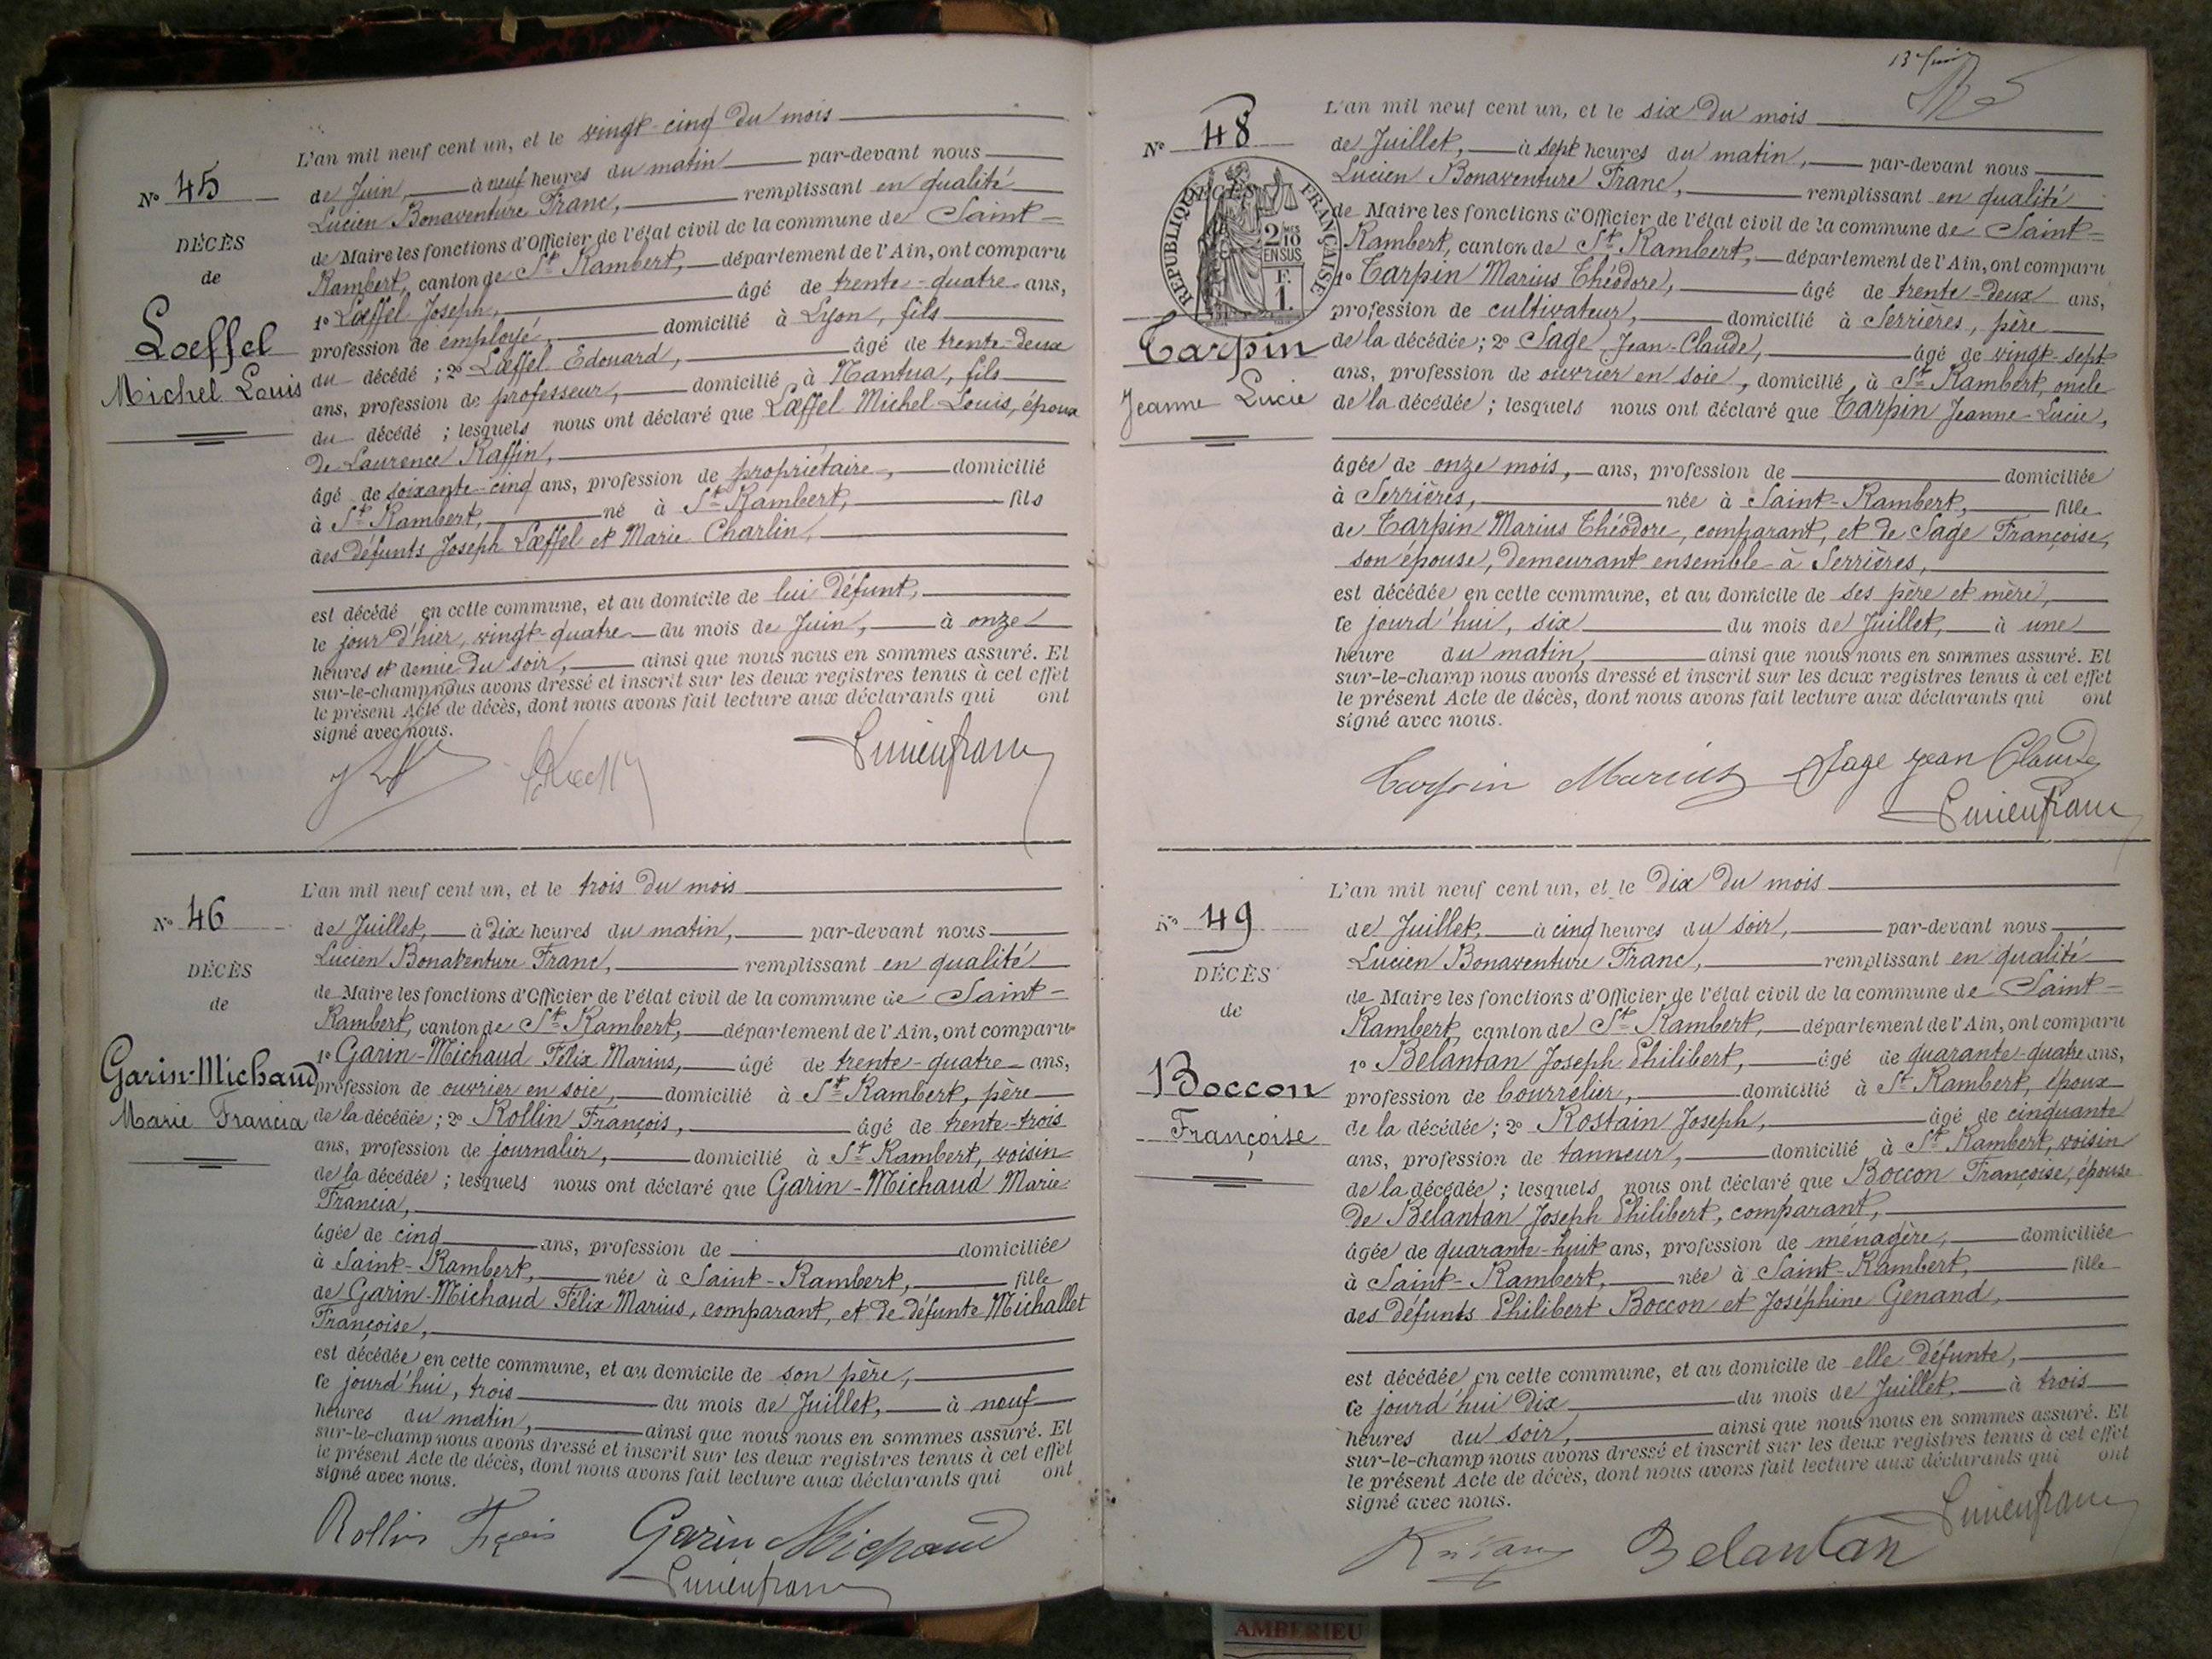 L'an mil neuf cent un, et le vingt-cinq du mois
N° 45
de Juin, à neuf heures du matin par-devant nous
Lucien Bonaventure Franc, remplissant en qualité
DÉCÈS
de Maire les fonctions d'Officier de l'état civil de la commune de Saint-
de
Rambert, canton de St Rambert, département de l'Ain, ont comparu
1° Lœffel Joseph, âgé de trente-quatre ans,
Lœffel
profession de employé, domicilié à Lyon, fils
Michel Louis
du décédé ; 2° Lœffel Edouard, âgé de trente-deux
ans, profession de professeur, domicilié à Nantua, fils
du décédé ; lesquels nous ont déclaré que Lœffel Michel-Louis, époux
de Laurence Raffin,
âgé de soixante-cinq ans, profession de propriétaire, domicilié
à St Rambert, né à St Rambert, fils
des défunts Joseph Lœffel et Marie Charlin,
est décédé en cette commune, et au domicile de lui défunt,
le jour d'hier, vingt-quatre du mois de Juin, à onze
heures et demie du soir, ainsi que nous nous en sommes assuré. Et
sur-le-champ nous avons dressé et inscrit sur les deux registres tenus à cet effet
le présent Acte de décès, dont nous avons fait lecture aux déclarants qui ont
signé avec nous.
Lucienfranc
L'an mil neuf cent un, et le trois du mois
N° 46
de Juillet, à dix heures du matin, par-devant nous
Lucien Bonaventure Franc, remplissant en qualité
DÉCÈS
de Maire les fonctions d'Officier de l'état civil de la commune de Saint-
de
Rambert, canton de St Rambert, département de l'Ain, ont comparu
1° Garin-Michaud Félix Marius, âgé de trente-quatre ans,
Garin-Michaud
profession de ouvrier en soie, domicilié à St Rambert, père
Marie Francia
de la décédée ; 2° Rollin François, âgé de trente-trois
ans, profession de journalier, domicilié à St Rambert, voisin
de la décédée ; lesquels nous ont déclaré que Garin-Michaud Marie
Francia,
âgée de cinq ans, profession de domiciliée
à Saint-Rambert, née à Saint-Rambert, fille
de Garin-Michaud Félix Marius, comparant, et de défunte Michallet
Françoise,
est décédée en cette commune, et au domicile de son père,
ce jourd'hui, trois du mois de Juillet, à neuf
heures du matin, ainsi que nous nous en sommes assuré. Et
sur-le-champ nous avons dressé et inscrit sur les deux registres tenus à cet effet
le présent Acte de décès, dont nous avons fait lecture aux déclarants qui ont
signé avec nous.
Rollin Fçois Garin Michaud
Lucienfranc
L'an mil neuf cent un, et le six du mois
N° 48
de Juillet, à sept heures du matin, par-devant nous
Lucien Bonaventure Franc, remplissant en qualité
RÉPUBLIQUE FRANÇAISE
2 10 MES EN SUS
F. 1.
de Maire les fonctions d'Officier de l'état civil de la commune de Saint-
Rambert, canton de St Rambert, département de l'Ain, ont comparu
1° Tarpin Marius Théodore, âgé de trente-deux ans,
profession de cultivateur, domicilié à Serrières, père
Tarpin
de la décédée ; 2° Sage Jean-Claude, âgé de vingt-sept
ans, profession de ouvrier en soie, domicilié à St Rambert, oncle
Jeanne Lucie
de la décédée ; lesquels nous ont déclaré que Tarpin Jeanne-Lucie,
âgée de onze mois, ans, profession de domiciliée
à Serrières, née à Saint-Rambert, fille
de Tarpin Marius Théodore, comparant, et de Sage Françoise,
son épouse, demeurant ensemble à Serrières,
est décédée en cette commune, et au domicile de ses père et mère,
ce jourd'hui, six du mois de Juillet, à une
heure du matin, ainsi que nous nous en sommes assuré. Et
sur-le-champ nous avons dressé et inscrit sur les deux registres tenus à cet effet
le présent Acte de décès, dont nous avons fait lecture aux déclarants qui ont
signé avec nous.
Tarpin Marius Sage Jean Claude
Lucienfranc
L'an mil neuf cent un, et le dix du mois
N° 49
de Juillet, à cinq heures du soir, par-devant nous
Lucien Bonaventure Franc, remplissant en qualité
DÉCÈS
de Maire les fonctions d'Officier de l'état civil de la commune de Saint-
de
Rambert, canton de St Rambert, département de l'Ain, ont comparu
1° Belantan Joseph Philibert, âgé de quarante-quatre ans,
Boccon
profession de bourrelier, domicilié à St Rambert, époux
Françoise
de la décédée ; 2° Rostain Joseph, âgé de cinquante
ans, profession de tanneur, domicilié à St Rambert, voisin
de la décédée ; lesquels nous ont déclaré que Boccon Françoise, épouse
de Belantan Joseph Philibert, comparant,
âgée de quarante-huit ans, profession de ménagère, domiciliée
à Saint-Rambert, née à Saint-Rambert, fille
des défunts Philibert Boccon et Joséphine Genand,
est décédée en cette commune, et au domicile de elle défunte,
ce jourd'hui dix du mois de Juillet, à trois
heures du soir, ainsi que nous nous en sommes assuré. Et
sur-le-champ nous avons dressé et inscrit sur les deux registres tenus à cet effet
le présent Acte de décès, dont nous avons fait lecture aux déclarants qui ont
signé avec nous.
Lucienfranc
Belantan
AMBERIEU